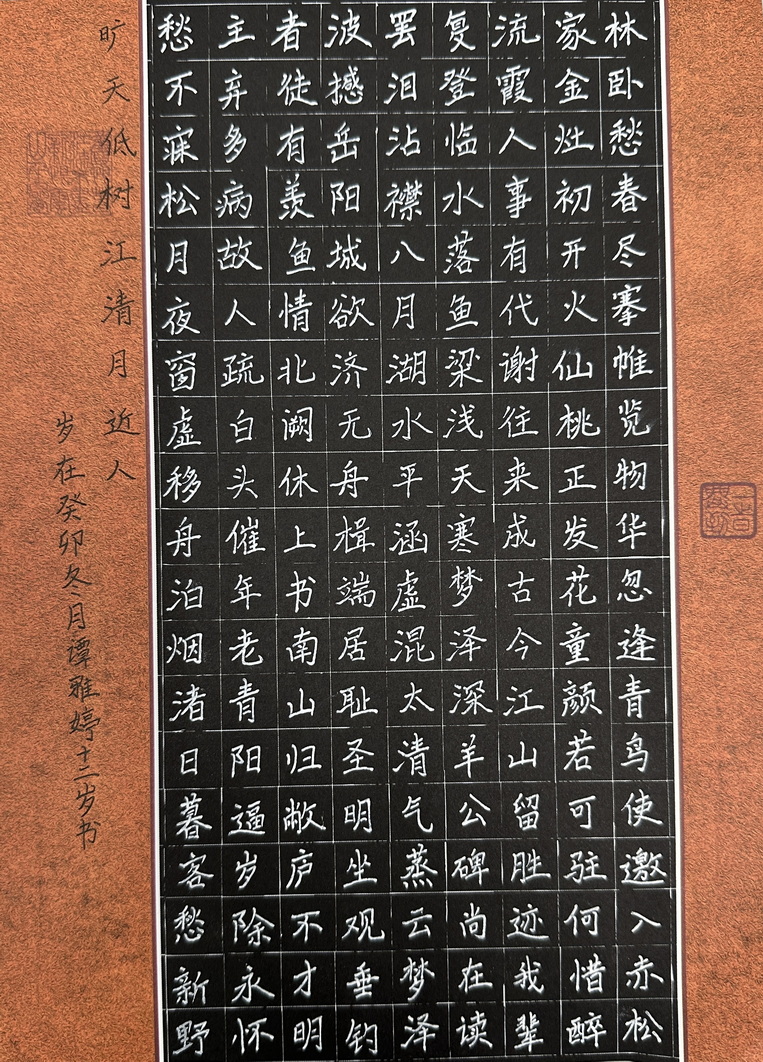 林卧愁春尽搴帷览物华忽逢青鸟使邀入赤松
家金灶初开火仙桃正发花童颜若可驻何惜醉
流霞人事有代谢往来成古今江山留胜迹我辈
复登临水落鱼梁浅天寒梦泽深羊公碑尚在读
罢泪沾襟八月湖水平涵虚混太清气蒸云梦泽
波撼岳阳城欲济无舟楫端居耻圣明坐观垂钓
者徒有羡鱼情北阙休上书南山归敝庐不才明
主弃多病故人疏白头催年老青阳逼岁除永怀
愁不寐松月夜窗虚移舟泊烟渚日暮客愁新野
旷天低树江清月近人
岁在癸卯冬月谭雅婷十二岁书